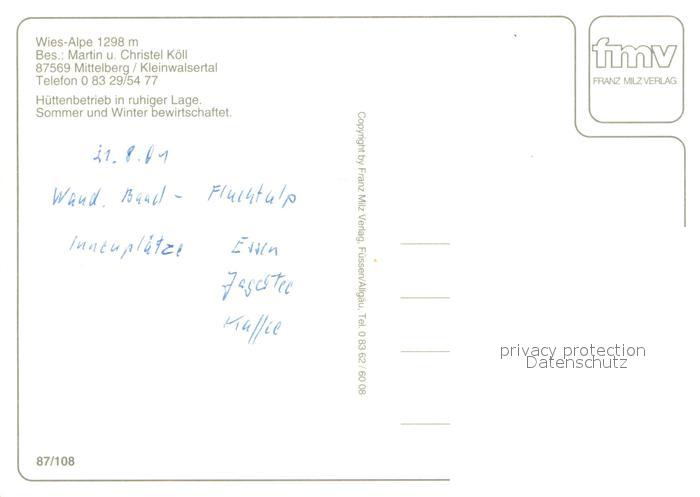 Wies-Alpe 1298 m
Bes.: Martin u. Christel Köll
87569 Mittelberg / Kleinwalsertal
Telefon 0 83 29/54 77
Hüttenbetrieb in ruhiger Lage.
Sommer und Winter bewirtschaftet.
fmv
FRANZ MILZ VERLAG
21.8.01
Wand. Baad - Fluchtalp
Innenplätze Essen
Jagatee
Kaffee
Copyright by Franz Milz Verlag, Füssen/Allgäu, Tel. 0 83 62 / 60 08
privacy protection
Datenschutz
87/108